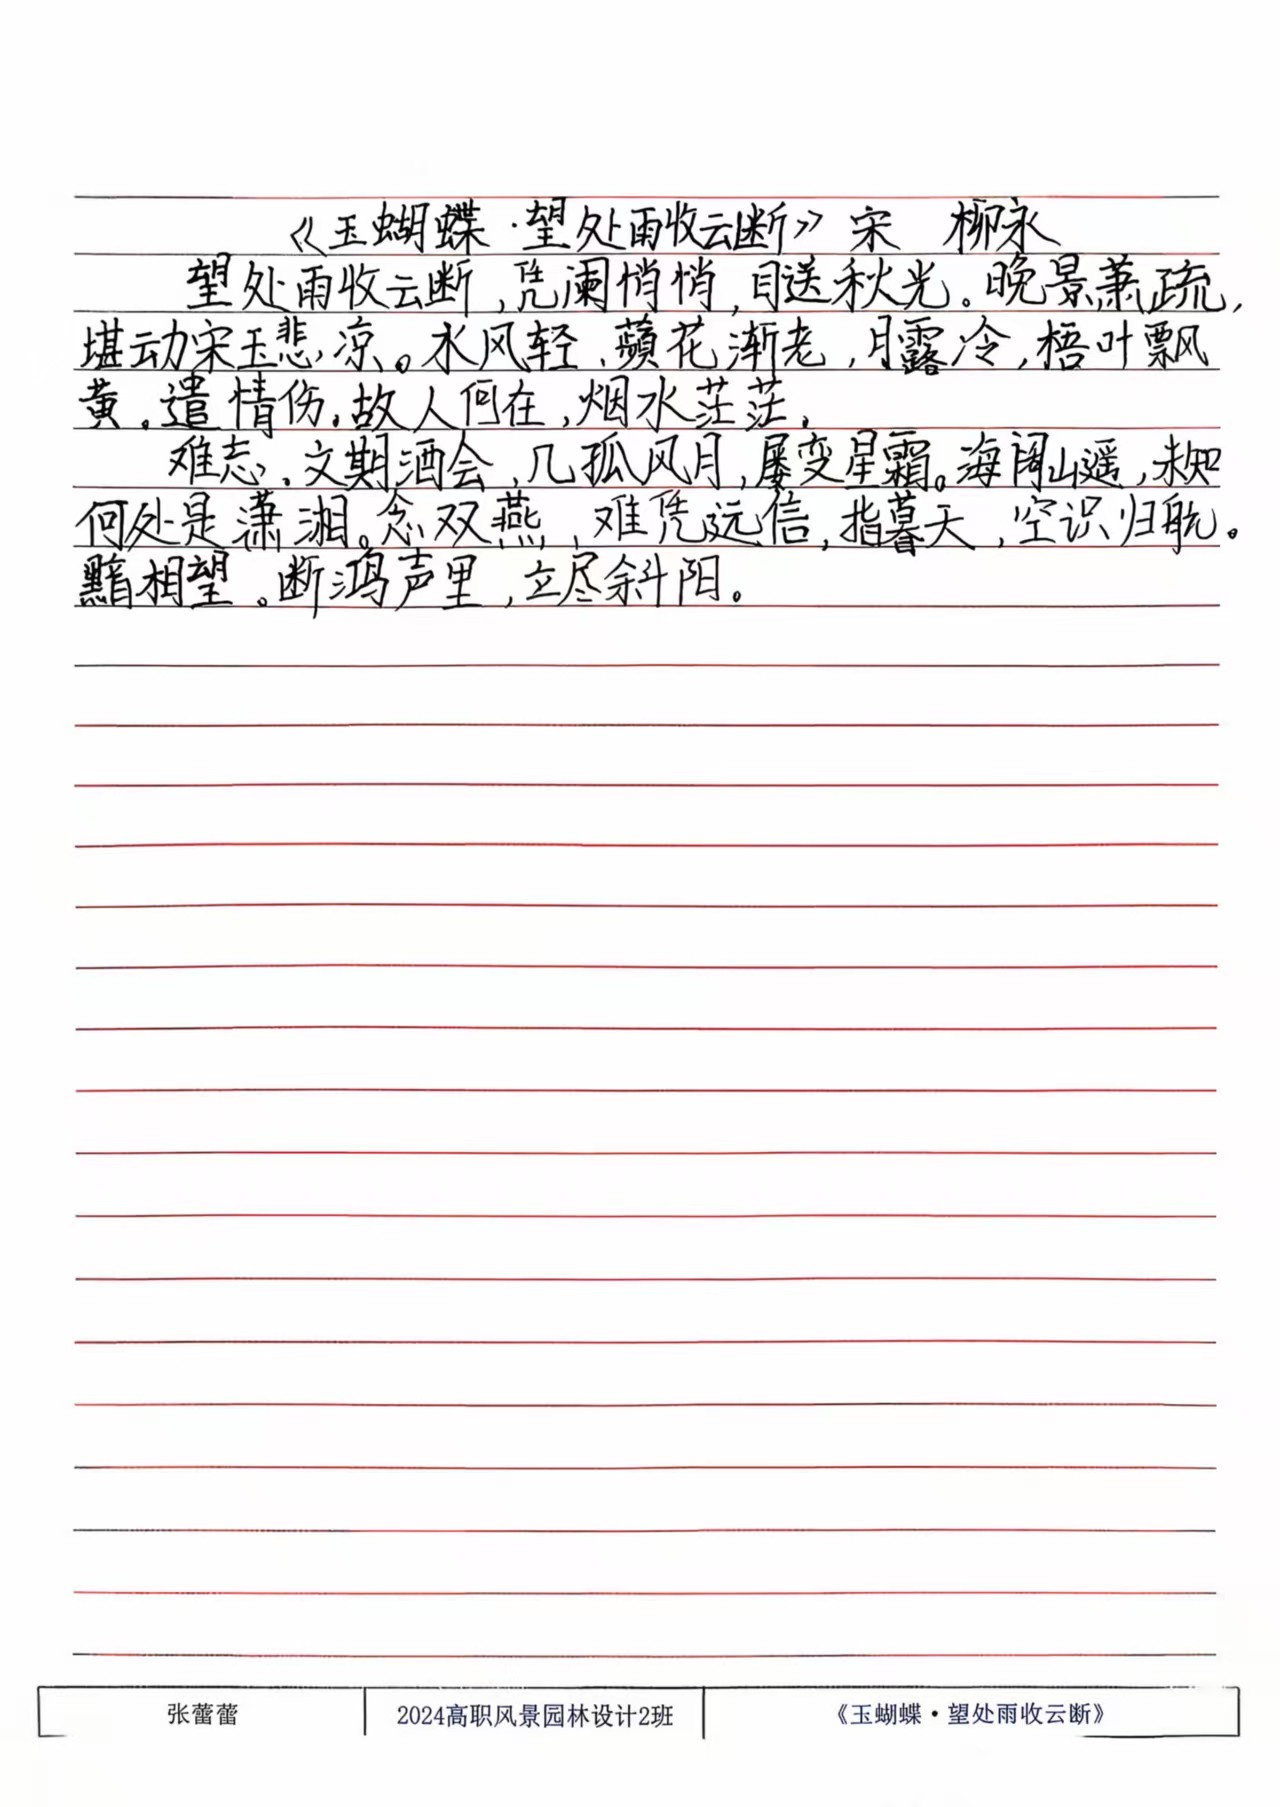 《玉蝴蝶·望处雨收云断》 宋 柳永
望处雨收云断,凭阑悄悄,目送秋光。晚景萧疏,
堪动宋玉悲凉。水风轻、蘋花渐老,月露冷,梧叶飘
黄。遣情伤,故人何在,烟水茫茫,
难忘、文期酒会,几孤风月,屡变星霜。海阔山遥,未知
何处是潇湘。念双燕,难凭远信,指暮天,空识归航。
黯相望。断鸿声里,立尽斜阳。
张蕾蕾 2024高职风景园林设计2班 《玉蝴蝶·望处雨收云断》